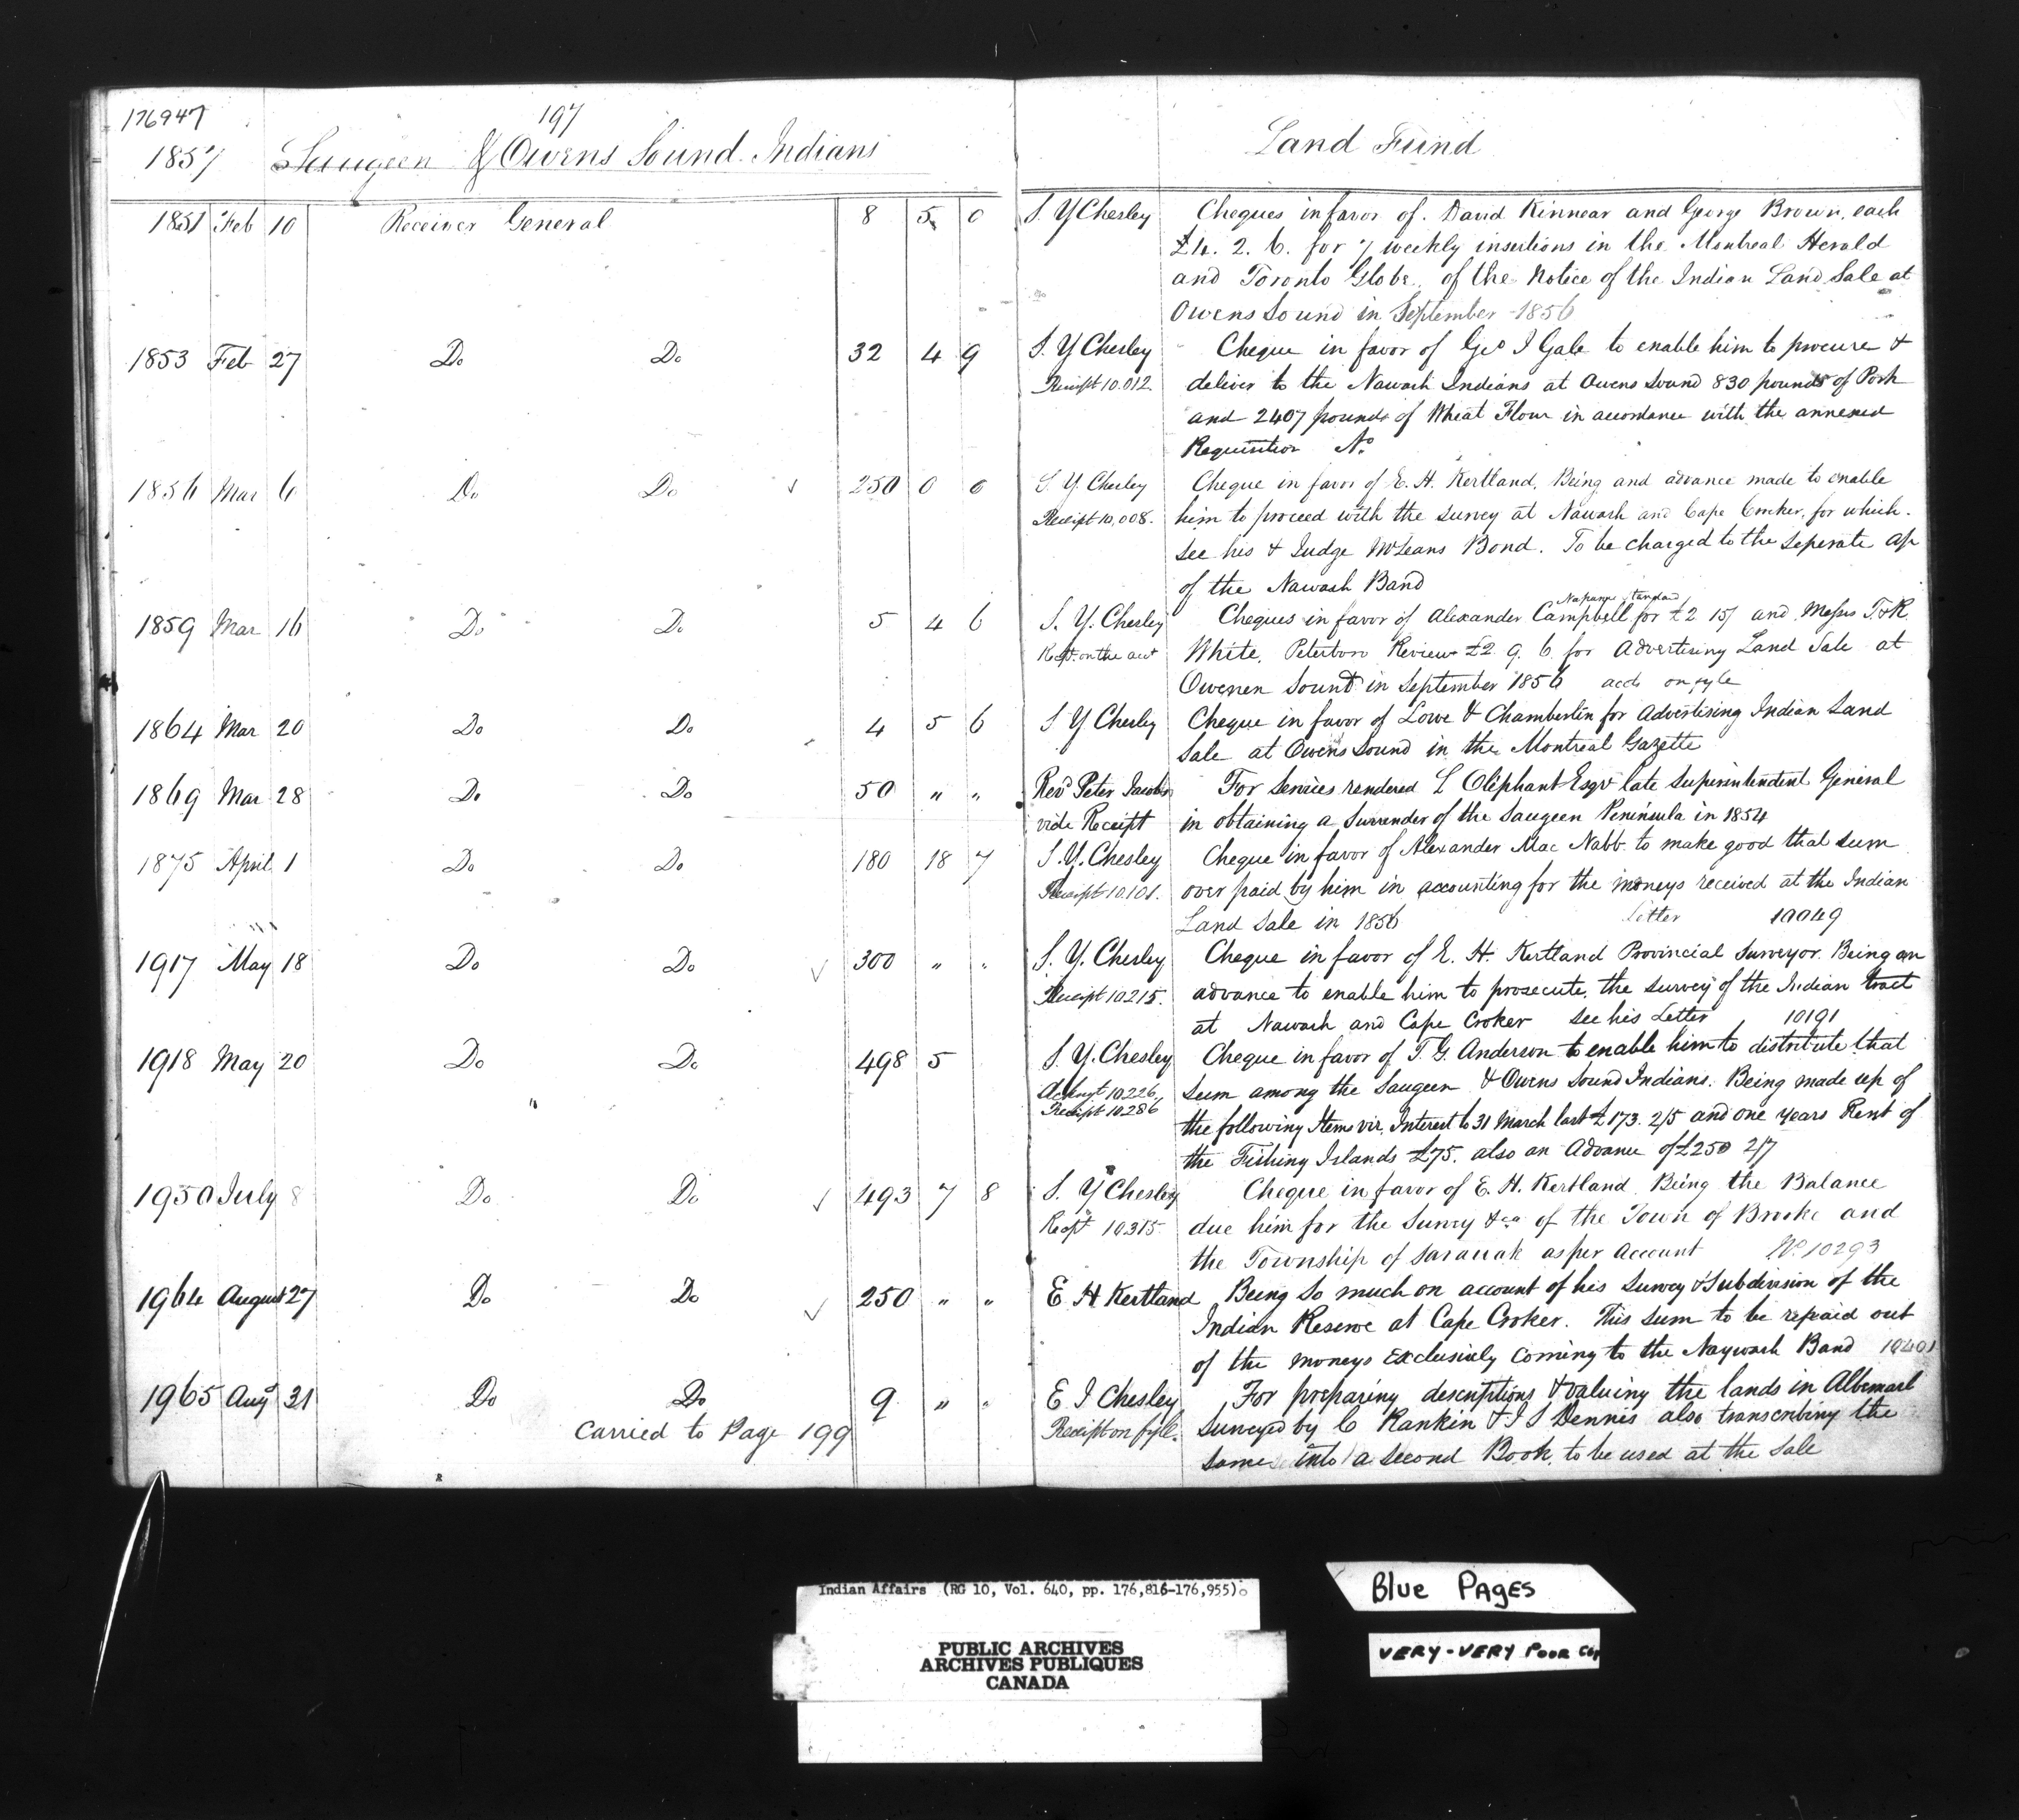 176947
197
1857 Saugeen & Owens Sound Indians Land Fund
1851 Feb 10 Receiver General 8 5 0 S. Y Chesley Cheques in favor of David Kinnear and George Brown, each
£4. 2. 6. for 7 weekly insertions in the Montreal Herald
and Toronto Globe, of the Notice of the Indian Land Sale at
Owens Sound in September 1856
1853 Feb 27 Do Do 32 4 9 S. Y Chesley Cheque in favor of Geo I Gale to enable him to procure &
Receipt 10.012 deliver to the Nawash Indians at Owens Sound 830 pounds of Pork
and 2407 pounds of Wheat Flour in accordance with the annexed
Requisition No
1856 Mar 6 Do Do ✓ 250 0 0 S. Y. Chesley Cheque in favor of E. H. Kertland, Being and advance made to enable
Receipt 10,008. him to proceed with the survey at Nawash and Cape Croker, for which
see his & Judge McLeans Bond. To be charged to the Seperate a/c
of the Nawash Band
Napanee Standard
1859 Mar 16 Do Do 5 4 6 S. Y. Chesley Cheques in favor of Alexander Campbell for £2 15/ and Messrs T. & R.
Rcpt. on the acct White, Peterboro Review £2 9. 6 for Advertising Land Sale at
Owenen Sound in September 1856 accts on fyle
1864 Mar 20 Do Do 4 5 6 S Y Chesley Cheque in favor of Lowe & Chamberlin for Advertising Indian Land
Sale at Owens Sound in the Montreal Gazette
1869 Mar 28 Do Do 50 " " Revd Peter Jacobs For Services rendered L Oliphant Esqr late Superintendent General
vide Receipt in obtaining a Surrender of the Saugeen Peninsula in 1854
1875 April 1 Do Do 180 18 7 S. Y. Chesley Cheque in favor of Alexander Mac Nabb to make good that sum
Receipt 10.101. over paid by him in accounting for the moneys received at the Indian
Land Sale in 1856 Letter 10049
1917 May 18 Do Do ✓ 300 " " S. Y. Chesley Cheque in favor of E. H. Kertland Provincial Surveyor. Being an
Receipt 10215. advance to enable him to prosecute, the survey of the Indian tract
at Nawash and Cape Croker see his Letter 10191
1918 May 20 Do Do 498 5 S. Y. Chesley Cheque in favor of T. G. Anderson to enable him to distribute that
Ackngt 10226, sum among the Saugeen & Owens Sound Indians. Being made up of
Receipt 10286 the following Items viz, Interest to 31 March last £173. 2/5 and one years Rent of
the Fishing Islands £75. also an Advance of £250 2/7
1950 July 8 Do Do ✓ 493 7 8 S. Y Chesley Cheque in favor of E. H. Kertland. Being the Balance
Recpt 10315 due him for the Survey &ca of the Town of Brooke and
the Township of Sarawak as per Account No 10293
1964 August 27 Do Do ✓ 250 " " E H Kertland Being so much on account of his Survey & Subdivision of the
Indian Reserve at Cape Croker. This sum to be repaid out
of the moneys exclusively coming to the Naywash Band 10401
1965 Augt 31 Do Do 9 " " E I Chesley For preparing descriptions & valuing the lands in Albemarl
Carried to Page 199 Receipt on fyle. Surveyed by C Rankin & J S Dennis also transcribing the
same into a Second Book, to be used at the Sale
Indian Affairs (RG 10, Vol. 640, pp. 176,816-176,955)
PUBLIC ARCHIVES
ARCHIVES PUBLIQUES
CANADA
Blue Pages
VERY-VERY POOR COP